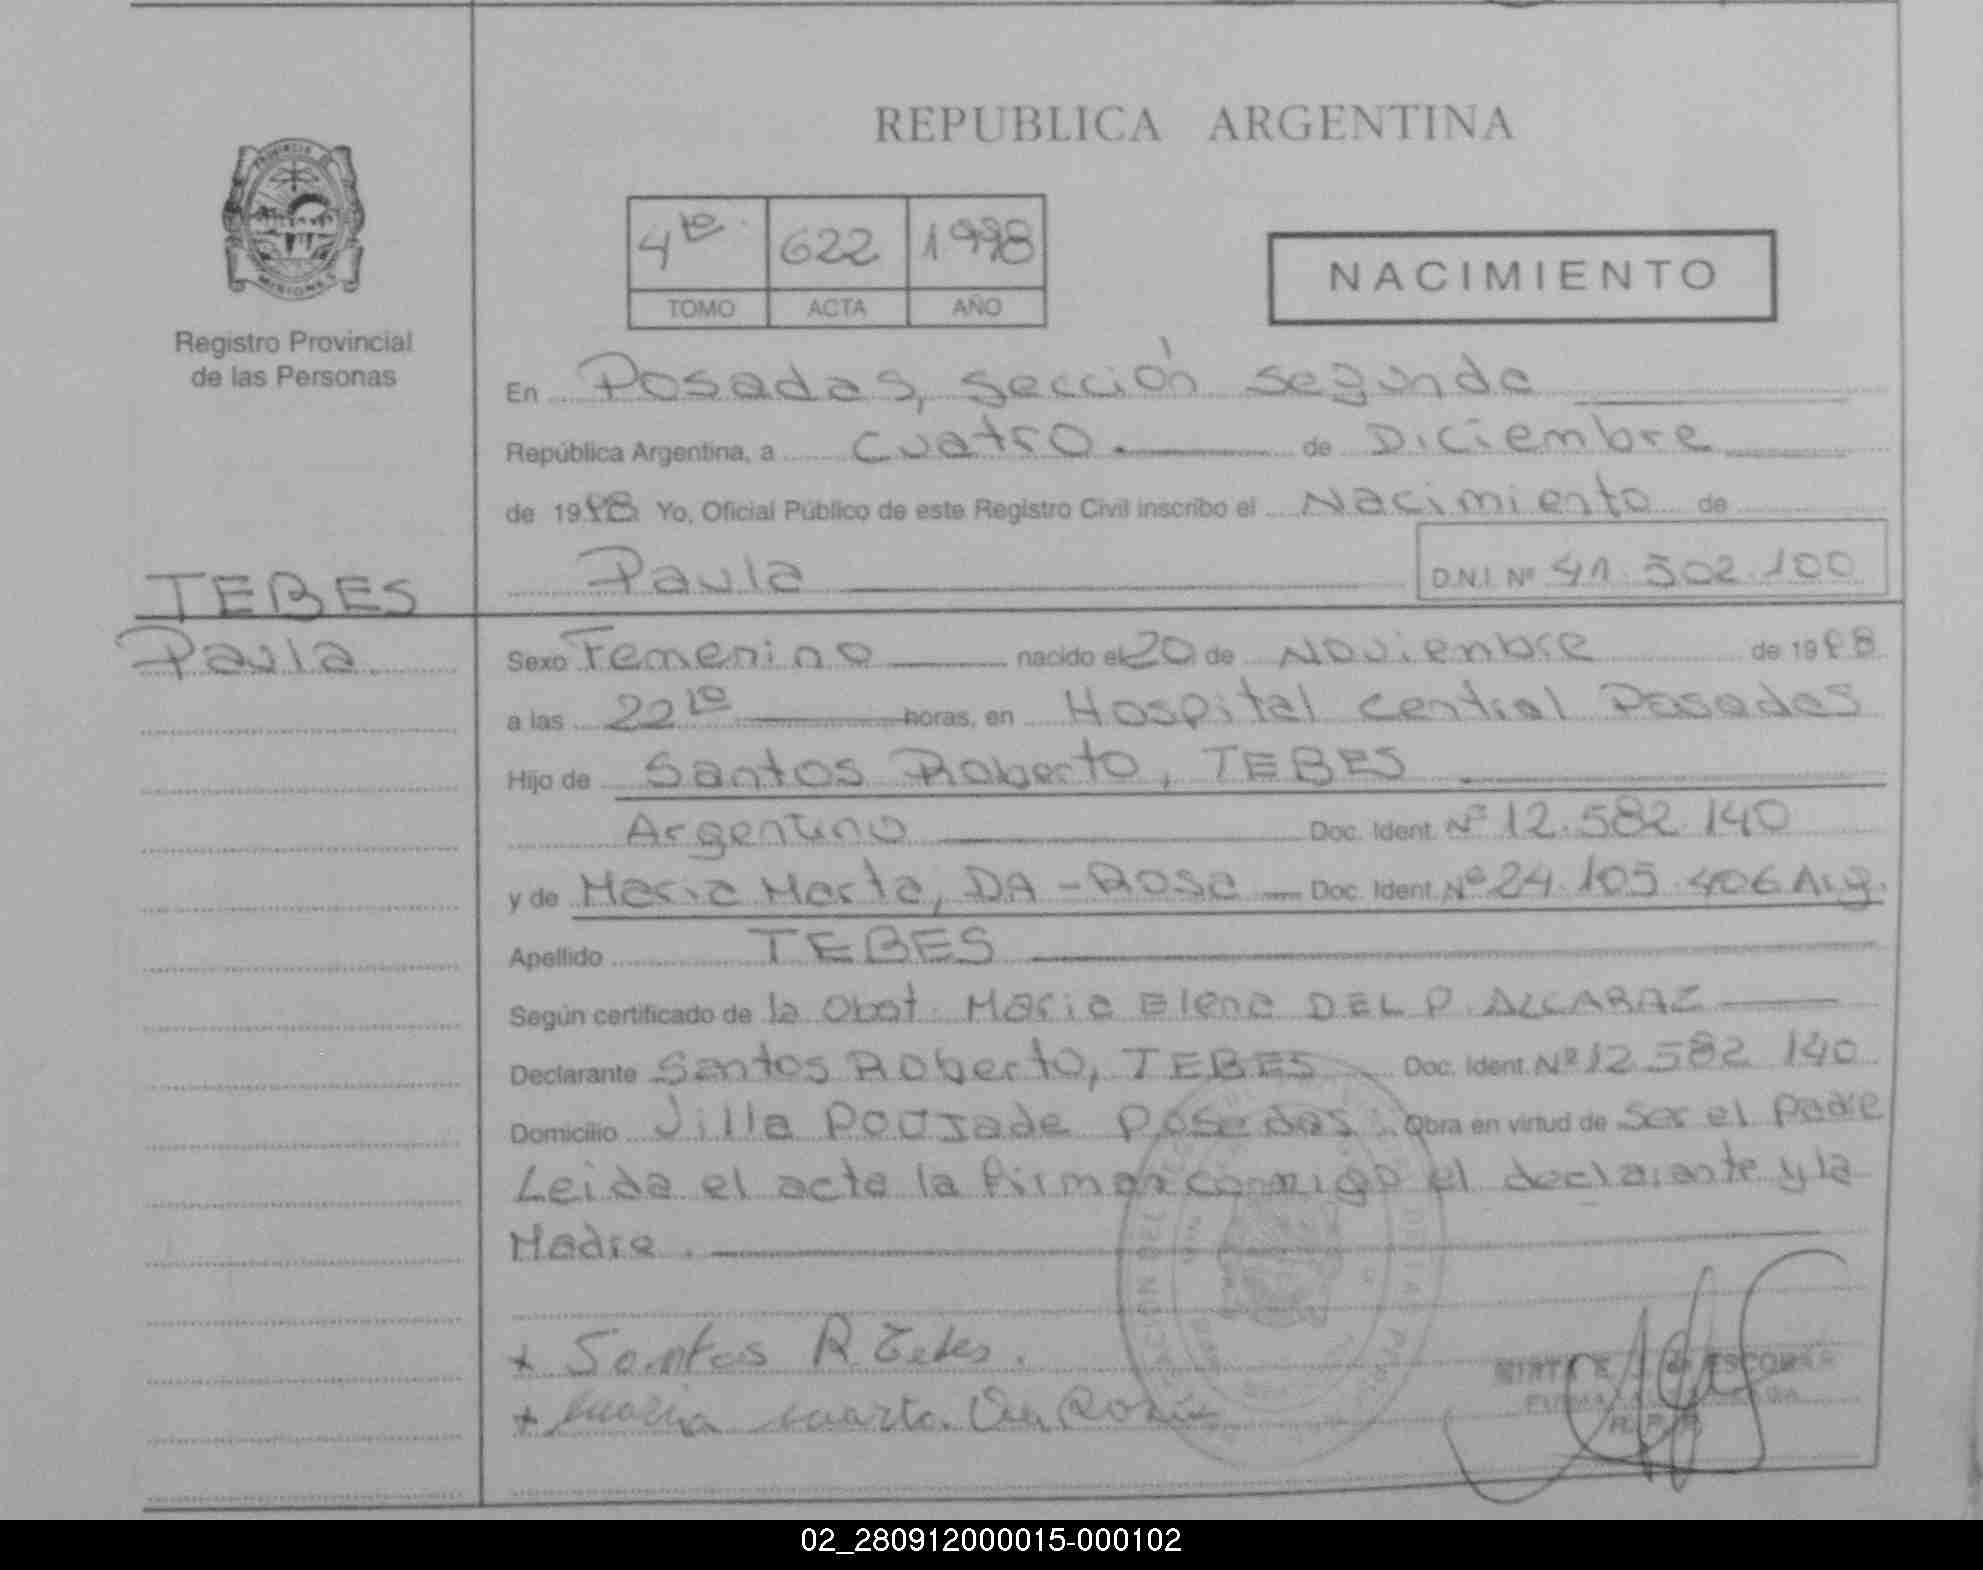 REPUBLICA ARGENTINA
PROVINCIA DE
MISIONES
Registro Provincial
de las Personas
4to 622 1998
TOMO ACTA AÑO
NACIMIENTO
En Posadas, sección segunda
República Argentina, a cuatro de Diciembre
de 1998 Yo, Oficial Público de este Registro Civil inscribo el Nacimiento de
Paula D.N.I. Nº 41.502.100
TEBES
Paula
Sexo Femenino nacido el 20 de Noviembre de 1998
a las 22 10 horas, en Hospital central Posadas
Hijo de Santos Roberto, TEBES
Argentino Doc. Ident. Nº 12.582.140
y de Maria Marta, DA-Rosa Doc. Ident. Nº 24.105.406 Arg.
Apellido TEBES
Según certificado de la Obst. Maria Elena DEL P. ALCARAZ
Declarante Santos Roberto, TEBES Doc. Ident. Nº 12.582.140
Domicilio Villa POUJADE Posadas. Obra en virtud de ser el padre
Leida el acta la firman conmigo el declarante y la
Madre.
+ Santos R. Tebes.
+ Maria Marta Da Rosa
ESCOBAR
R.P.P.
02_280912000015-000102